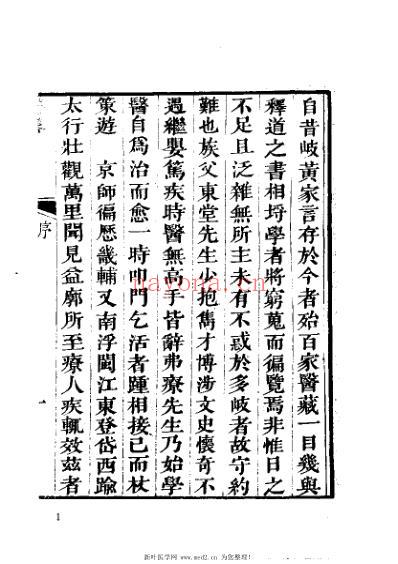 自昔岐黃家言存於今者殆百家醫藏一目幾與
釋道之書相埒學者將窮蒐而徧覽焉非惟日之
不足且泛雜無所主未有不惑於多岐者故守約
難也族父東堂先生少抱雋才博涉文史懷奇不
遇繼嬰篤疾時醫無高手皆辭弗療先生乃始學
醫自爲治而愈一時叩門乞活者踵相接已而杖
策遊 京師徧歷畿輔又南浮閩江東登岱西踰
太行壯觀萬里聞見益廓所至療人疾輒效茲者
序
一
nayona.cn
1
新叶医学网 www.med2.cn 为您整理!